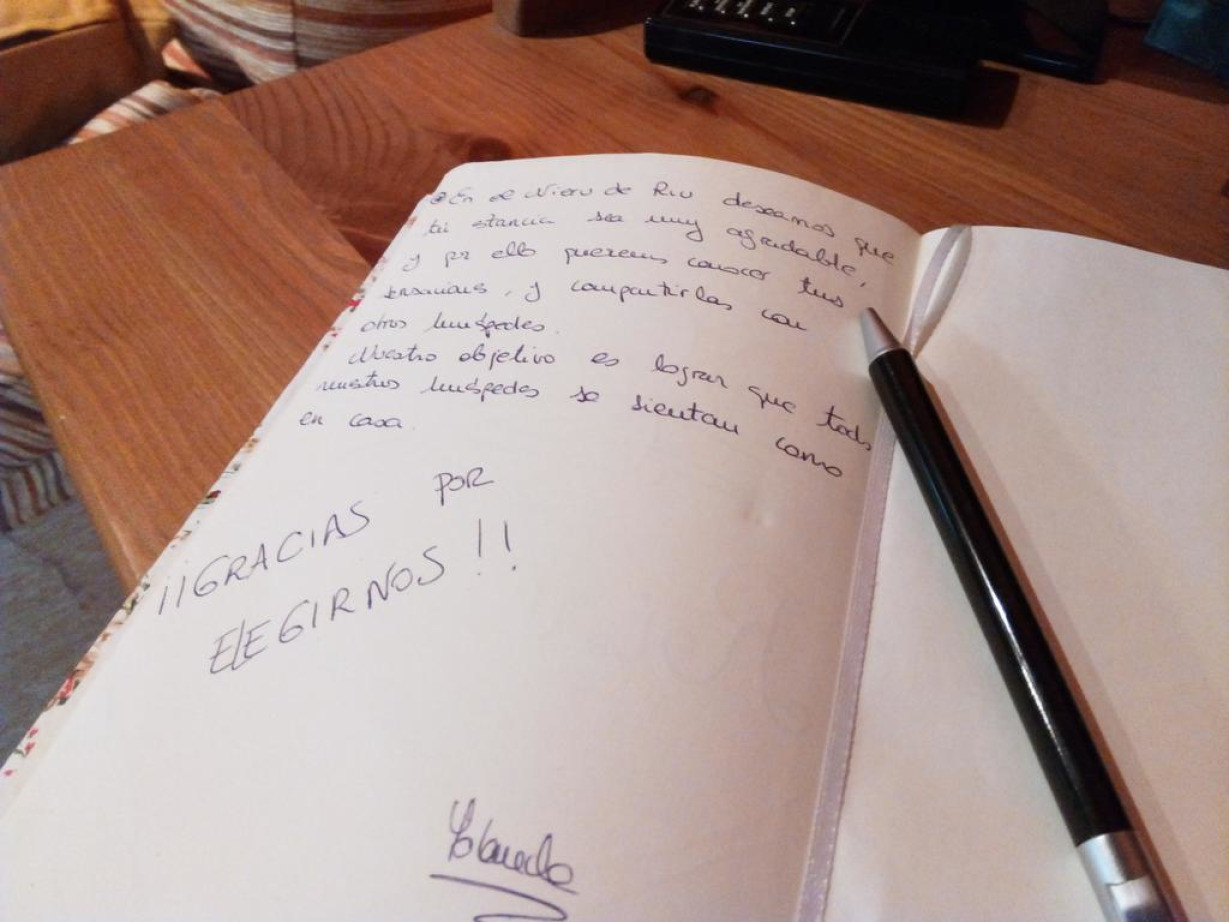 En el Nieru de Riu deseamos que
tú estancia sea muy agradable,
y por ello queremos conocer tus
y compartirlas con
otros huéspedes.
Nuestro objetivo es lograr que todos
nuestros huéspedes se sientan como
en casa.
¡¡GRACIAS POR
ELEGIRNOS!!
Yolanda